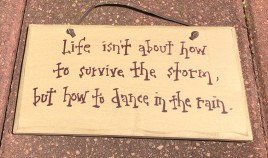 Life isn't about how
to survive the storm,
but how to dance in the rain.